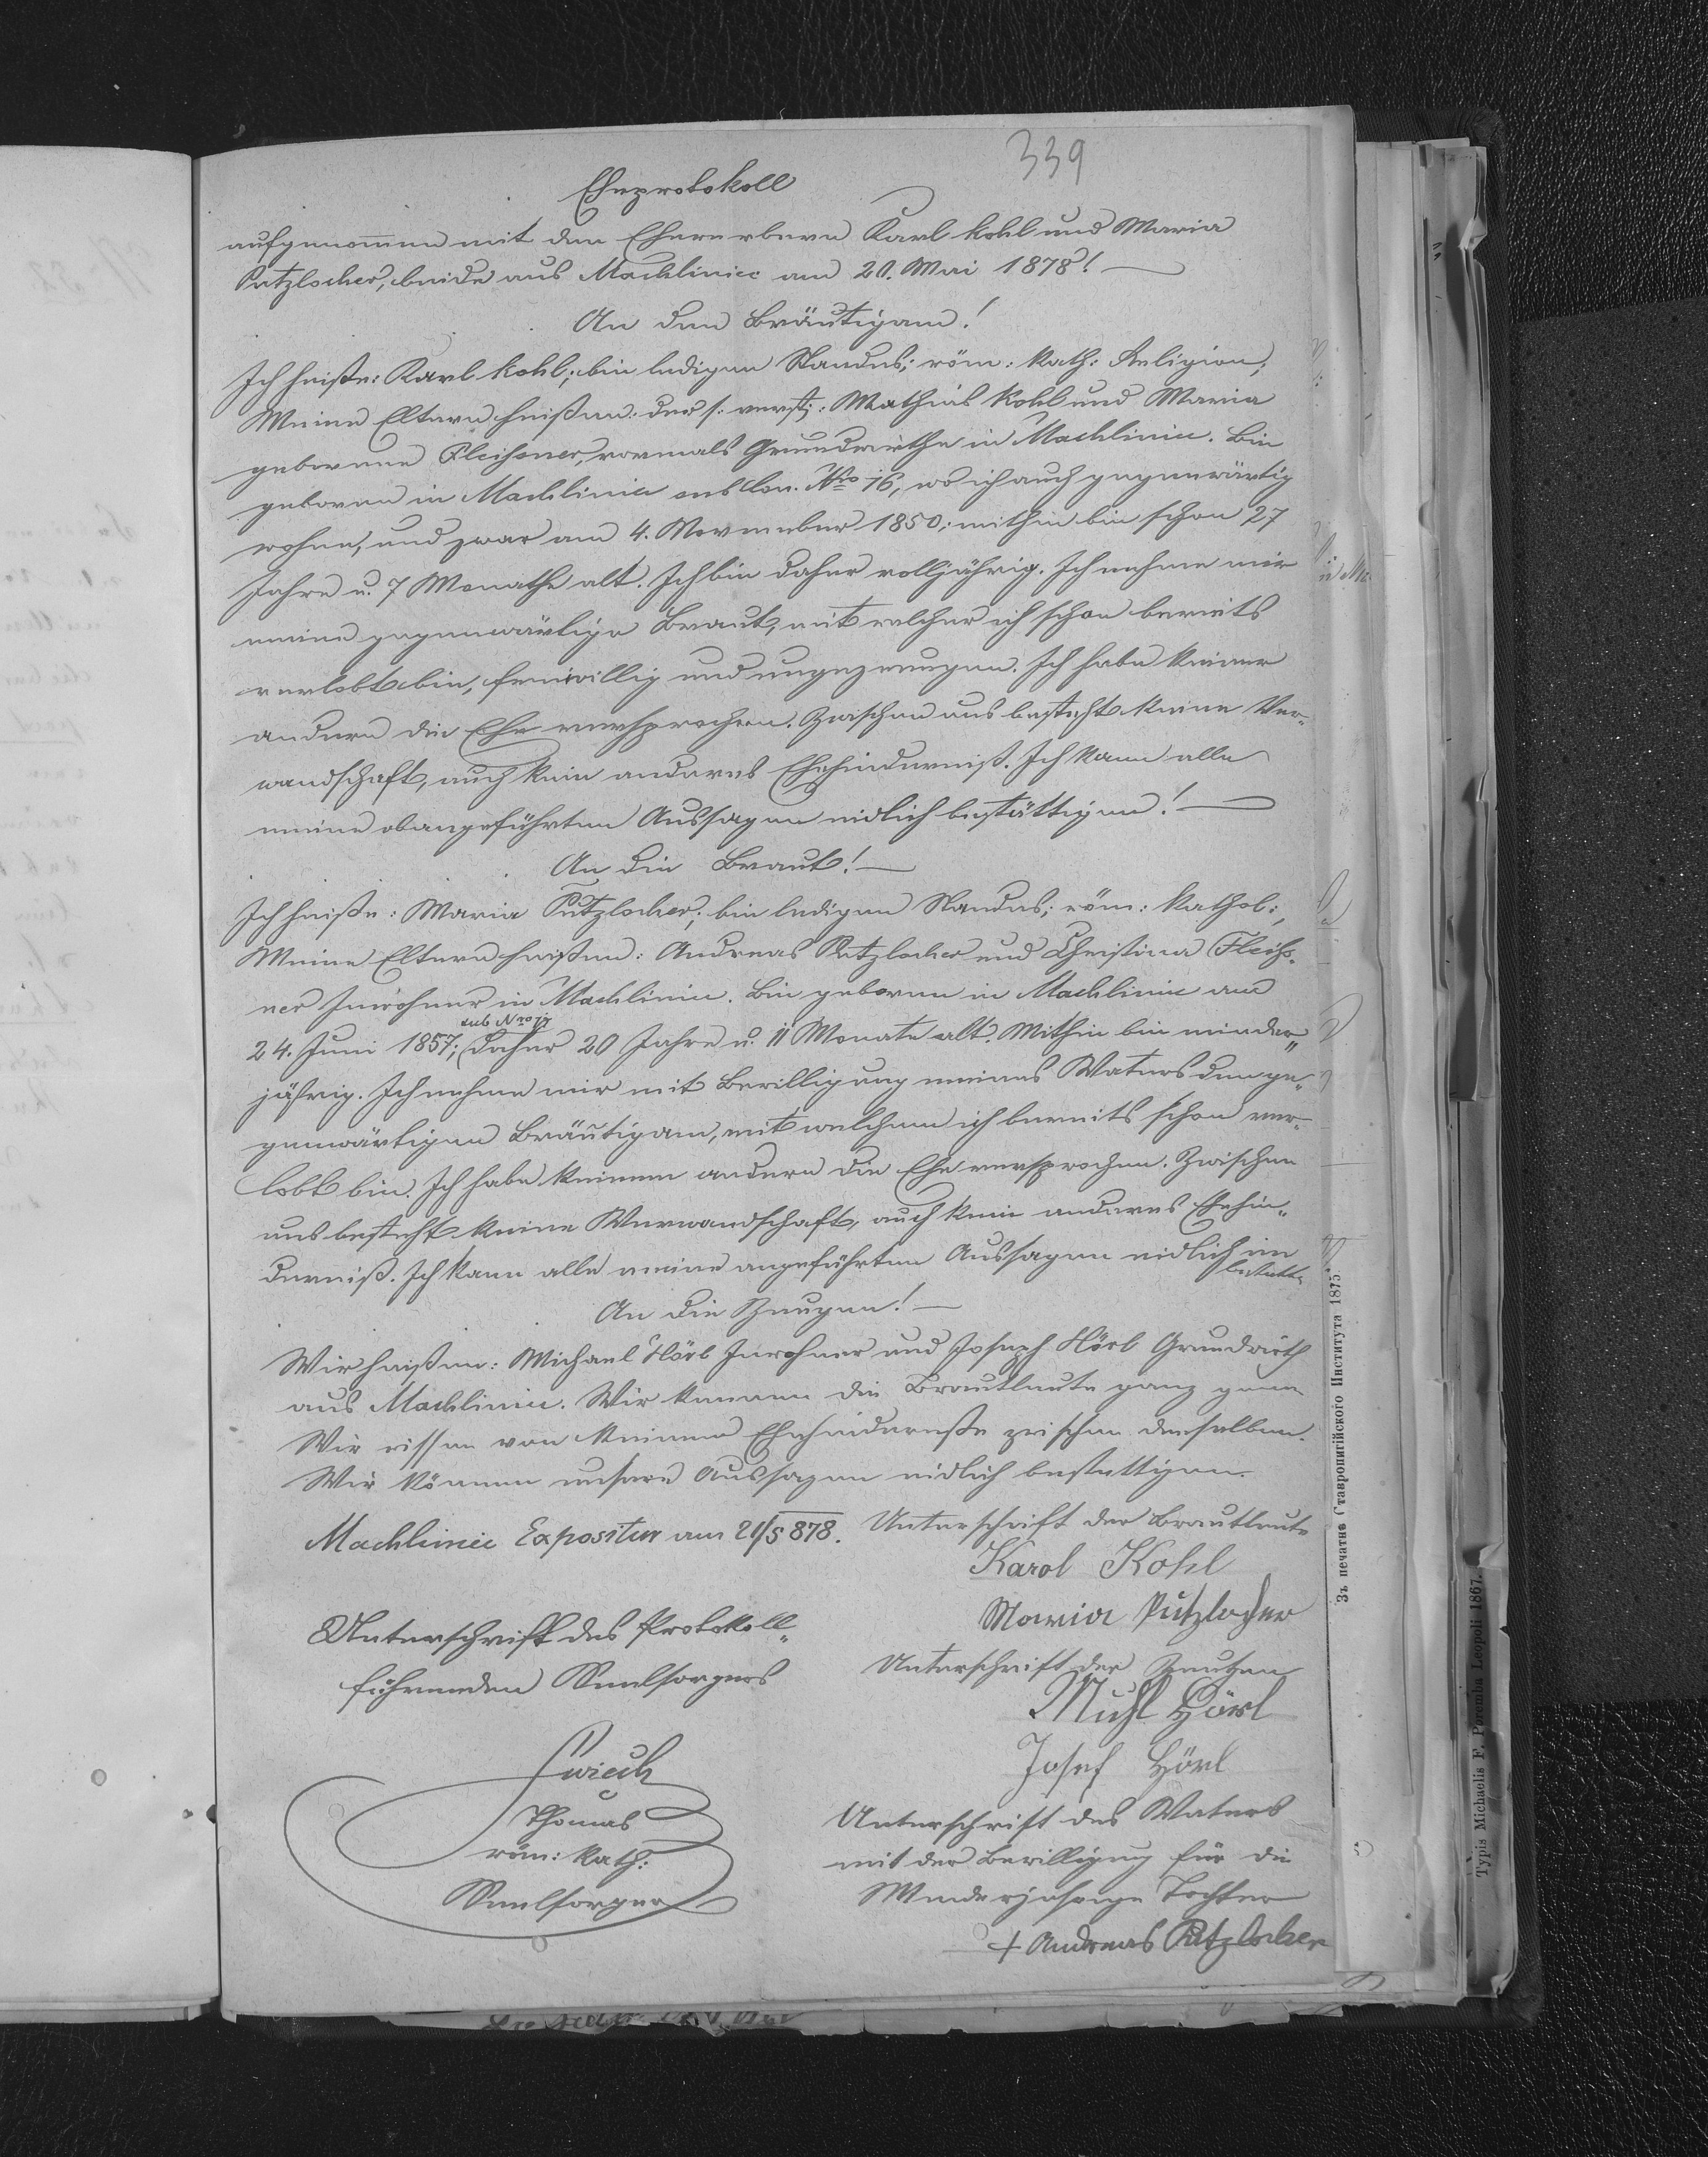 339
Eheprotokoll
aufgenommen mit den Ehewerbern Karl Kohl und Maria
Putzlocher, beide aus Machliniec am 20. Mai 1878!
An den Bräutigam!
Ich heiße: Karl Kohl; bin ledigen Standes; röm: kath: Religion;
Meine Eltern heißen: der s: verst: Mathias Kohl und Maria
geborene Fleihsner, vormals Grundwirthe in Machliniec. Bin
geboren in Machliniec sub Con. Nro 16, wo ich auch gegenwärtig
wohne, und zwar am 4. November 1850; mithin bin schon 27
Jahre u. 7 Monathe alt. Ich bin daher volljährig. Ich nehme mir
meine gegenwärtige Braut, mit welcher ich schon bereits
verlobt bin, freiwillig und ungezwungen. Ich habe keiner
andern die Ehe versprochen. Zwischen uns besteht keine Ver-
wandschaft, auch kein anderes Ehehinderniß. Ich kann alle
meine obangeführten Aussagen eidlich bestättigen!
An die Braut!
Ich heiße: Maria Putzlocher; bin ledigen Standes; röm: kathol:,
Meine Eltern heißen: Andreas Putzlocher und Christina Fleihs-
ner Inwohner in Machliniec. Bin geboren in Machliniec am
sub Nro
24. Juni 1857; daher 20 Jahre u. 11 Monate alt. Mithin bin minder„
jährig. Ich nehme mir mit Bewilligung meines Vaters den ge„
genwärtigen Bräutigam, mit welchem ich bereits schon ver-
lobt bin. Ich habe keinem andern die Ehe versprochen. Zwischen
uns besteht keine Verwandschaft, auch kein anderes Ehehin„
derniß. Ich kann alle meine angeführten Aussagen eidlich
An die Zeugen!
Wir heißen: Michael Hörl Inwohner und Joseph Hörl Grundwirth
aus Machliniec. Wir kennen die Brautleute ganz genau
Wir wissen von keinem Ehehinderniße zwischen denselben.
Wir können unsere Aussagen eidlich bestettigen.
Machliniec Expositur am 20/5 878.
Unterschrift der Brautleute
Karol Kohl
Maria Putzlocher
Unterschrift des Protokoll„
führenden Seelsorgers
Unterschrift der Zeugen
Michl Hörl
Josef Hörl
Thomas
röm: kath:
Seelsorger
Unterschrift des Vaters
mit der Bewilligung für die
Minderjährige Tochter
+ Andreas Putzlocher
Зъ печатнѣ Ставропигійского Института 1875.
Typis Michaelis F. Poremba Leopoli 1867.